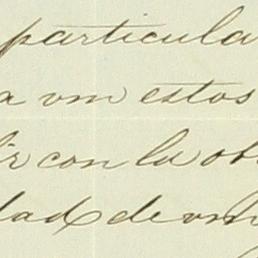 particula
a vm estos
ir con la ob
dad de vm